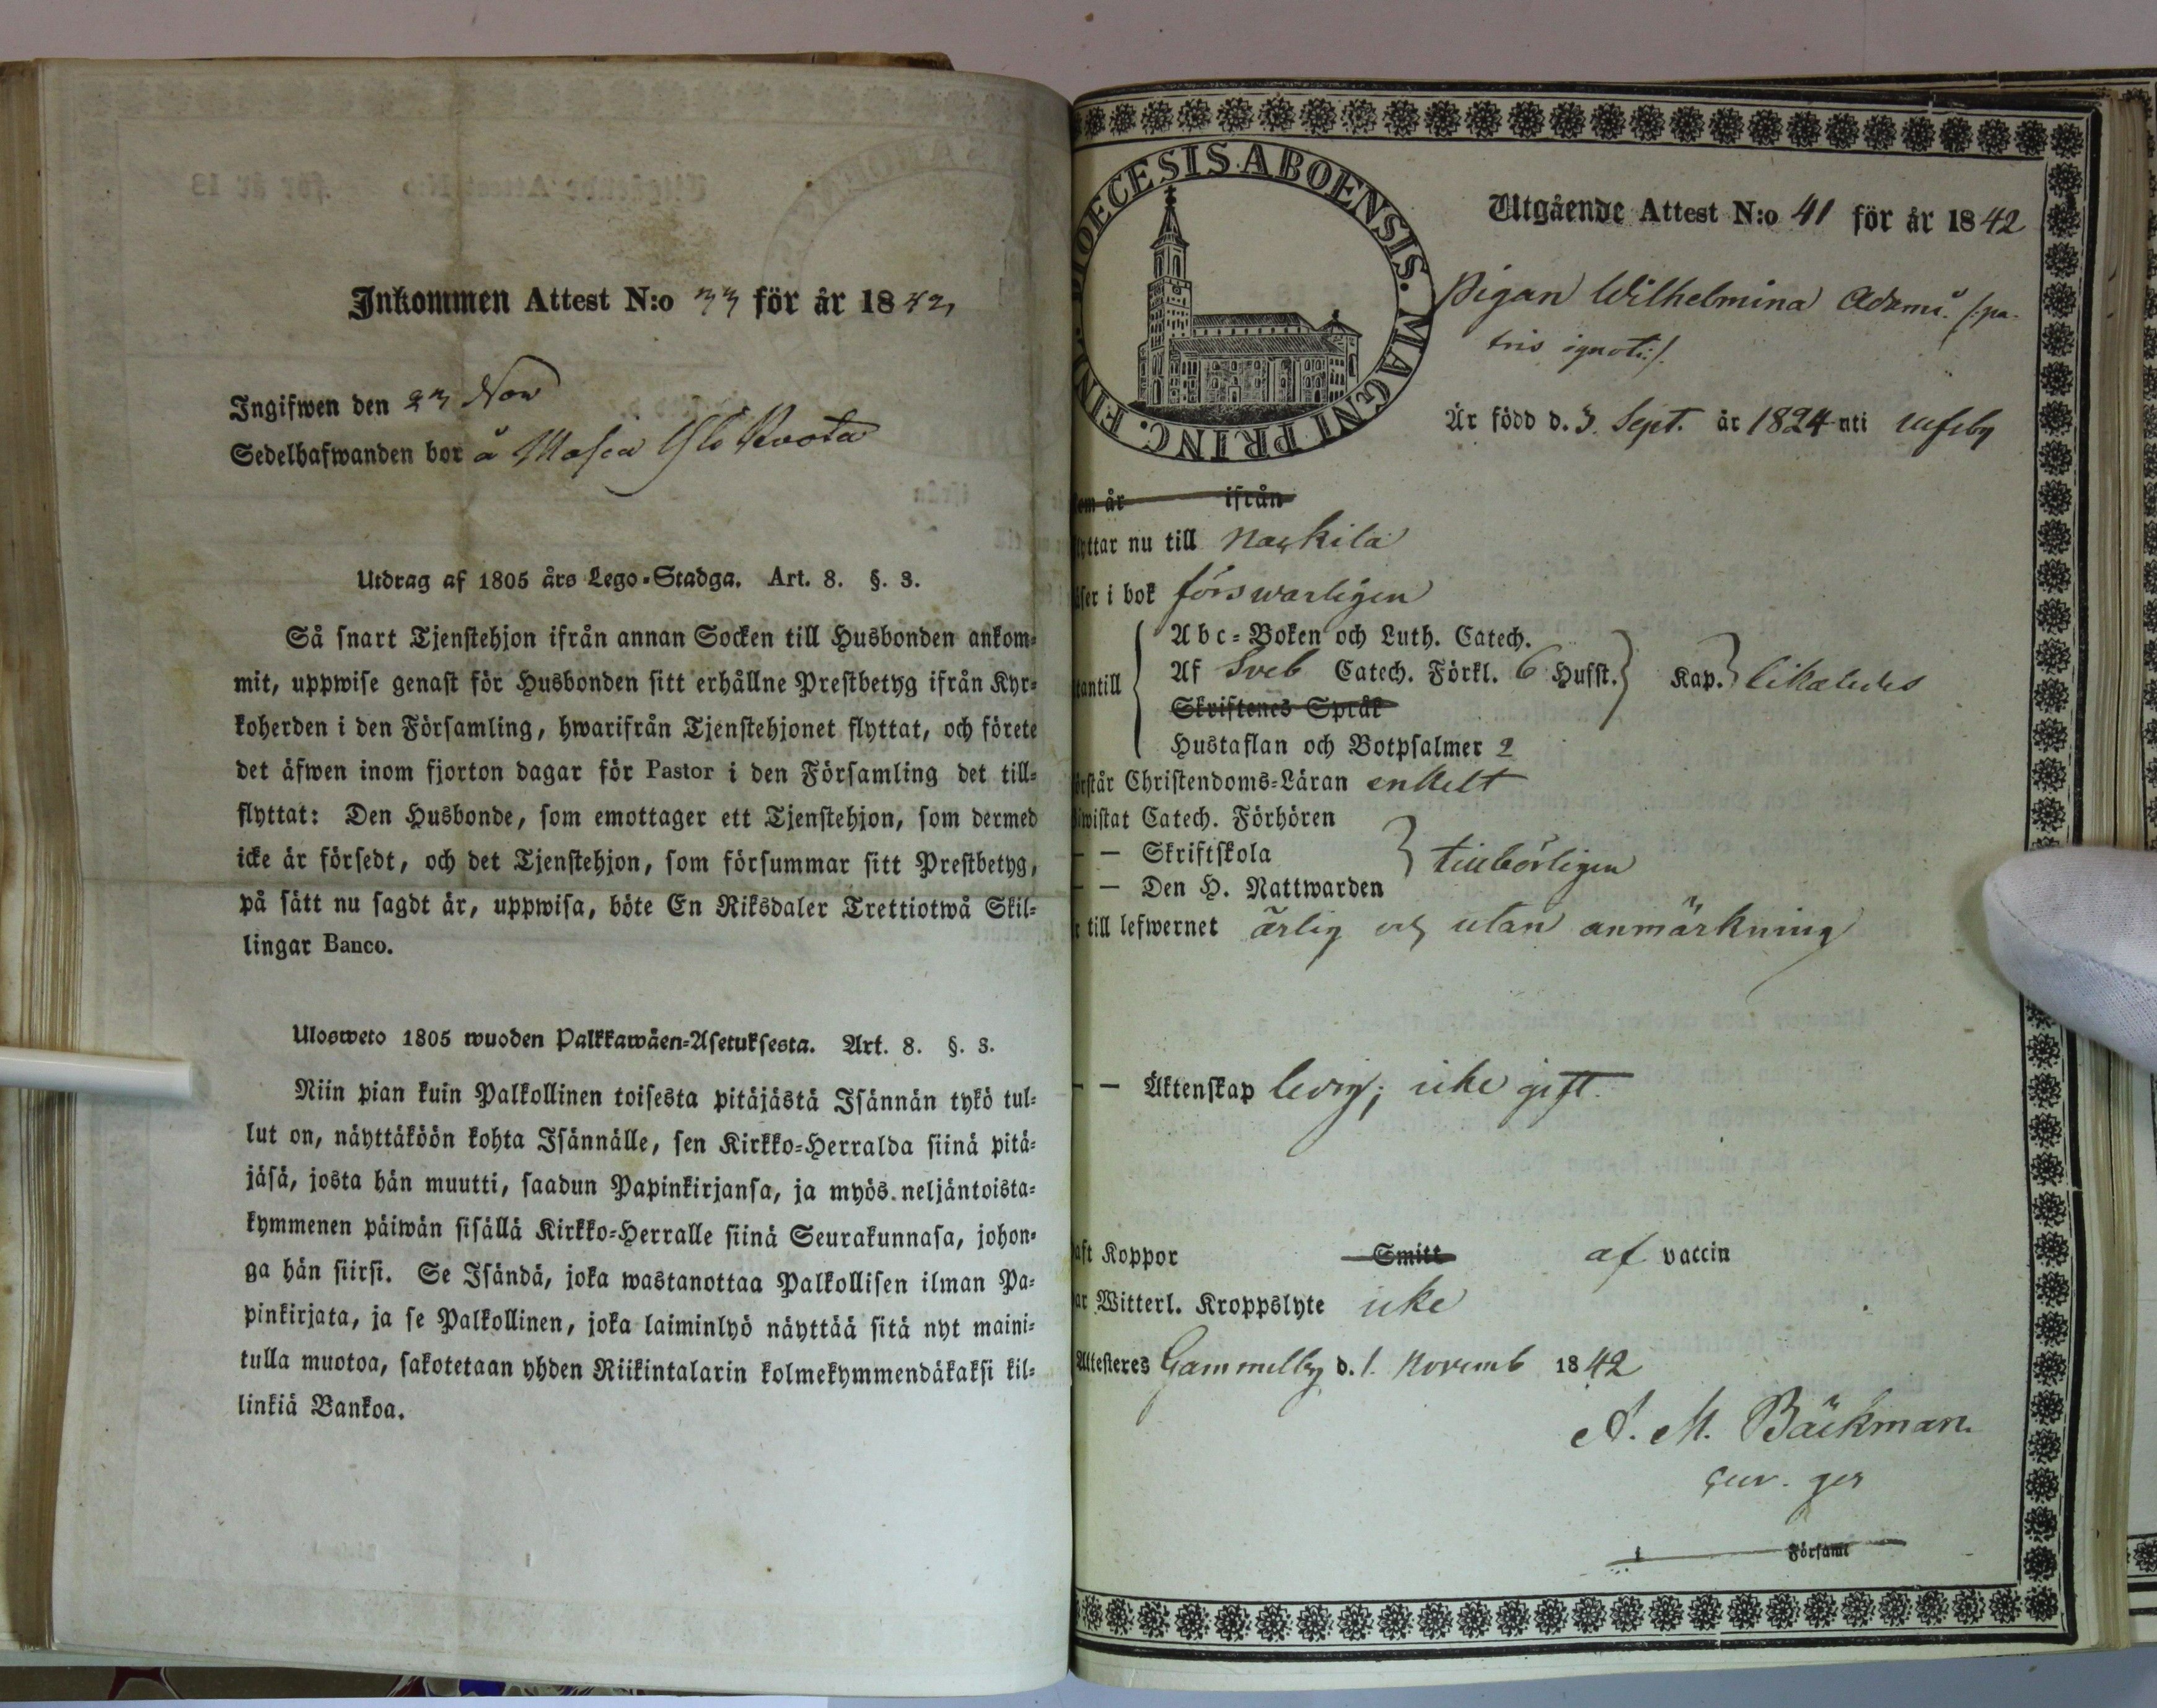 Inkommen Attest N:o 33 för år 1842
Ingifwen den 23 Nov
Sedelhafwanden bor å Masia Yli Kvota
Utdrag af 1805 års Lego-Stadga. Art. 8. §. 3.
Så snart Tjenstehjon ifrån annan Socken till Husbonden ankom-
mit, uppwise genast för Husbonden sitt erhållne Prestbetyg ifrån Kyr-
koherden i den Församling, hwarifrån Tjenstehjonet flyttat, och förete
det äfwen inom fjorton dagar för Pastor i den Församling det till-
flyttat: Den Husbonde, som emottager ett Tjenstehjon, som dermed
icke är försedt, och det Tjenstehjon, som försummar sitt Prestbetyg,
på sätt nu sagdt är, uppwisa, böte En Riksdaler Trettiotwå Skil-
lingar Banco.
Ulosweto 1805 wuoden Palkkawäen-Asetuksesta. Art. 8. §. 3.
Niin pian kuin Palkollinen toisesta pitäjästä Isännän tykö tul-
lut on, näyttäköön kohta Isännälle, sen Kirkko-Herralda siinä pitä-
jäsä, josta hän muutti, saadun Papinkirjansa, ja myös neljäntoista-
kymmenen päiwän sisällä Kirkko-Herralle siinä Seurakunnasa, johon-
ga hän siirsi. Se Isändä, joka wastanottaa Palkollisen ilman Pa-
pinkirjata, ja se Palkollinen, joka laiminlyö näyttää sitä nyt maini-
tulla muotoa, sakotetaan yhden Riikintalarin kolmekymmendäkaksi kil-
linkiä Bankoa.
DIOECESIS ABOENSIS. MAGNI PRINC. FIN.
Utgående Attest N:o 41 för år 1842
Pigan Wilhelmina Adams. /:pa-
tris ignoti:/.
Är född d. 3. Sept. år 1824 uti Ulfsby
om år ifrån
yttar nu till Nackila
äser i bok förswarligen
Abc-Boken och Luth. Catech.
antill Af Sveb Catech. Förkl. 6 Hufst. Kap. likaledes
Skriftenes Språk
Hustaflan och Botpsalmer 2
örstår Christendoms-Läran enkelt
iwistat Catech. Förhören
— — Skriftskola tillbörligen
— — Den H. Nattwarden
r till lefwernet ärlig och utan anmärkning
— — Äktenskap ledig; icke gift.
aft Koppor Smitt af vaccin
ar Witterl. Kroppslyte icke
Attesteres Gammelby d. 1. Novemb 1842
A. M. Bäckman
cur. ger
i Församl